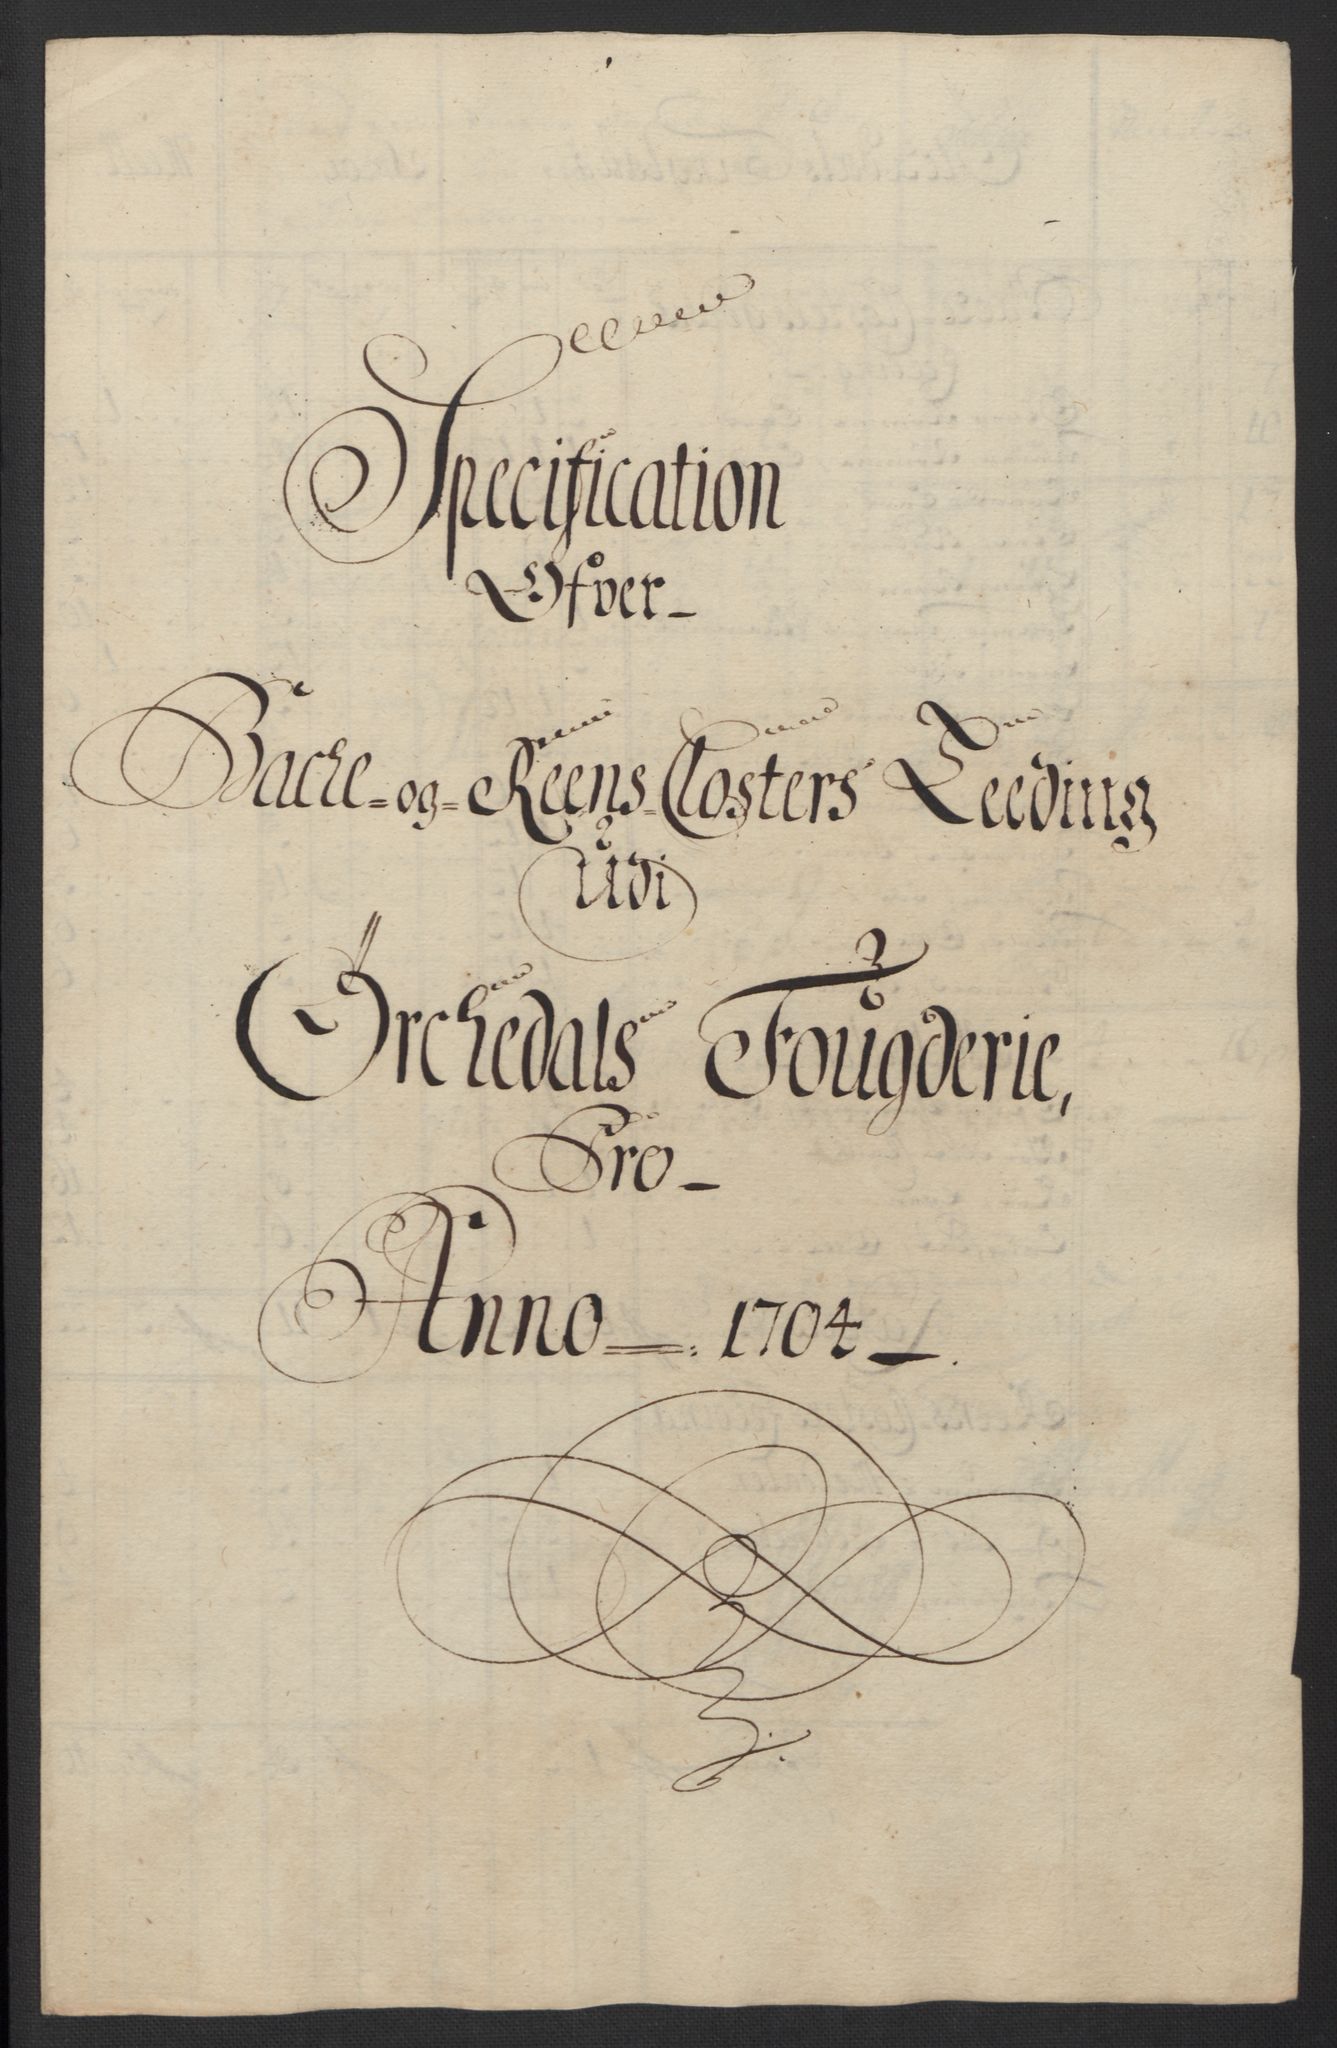 Specification
Ofver
Bache-og-Reens-Closters Leeding
Udi
Orchedals Fougderie,
Pro
Anno 1704